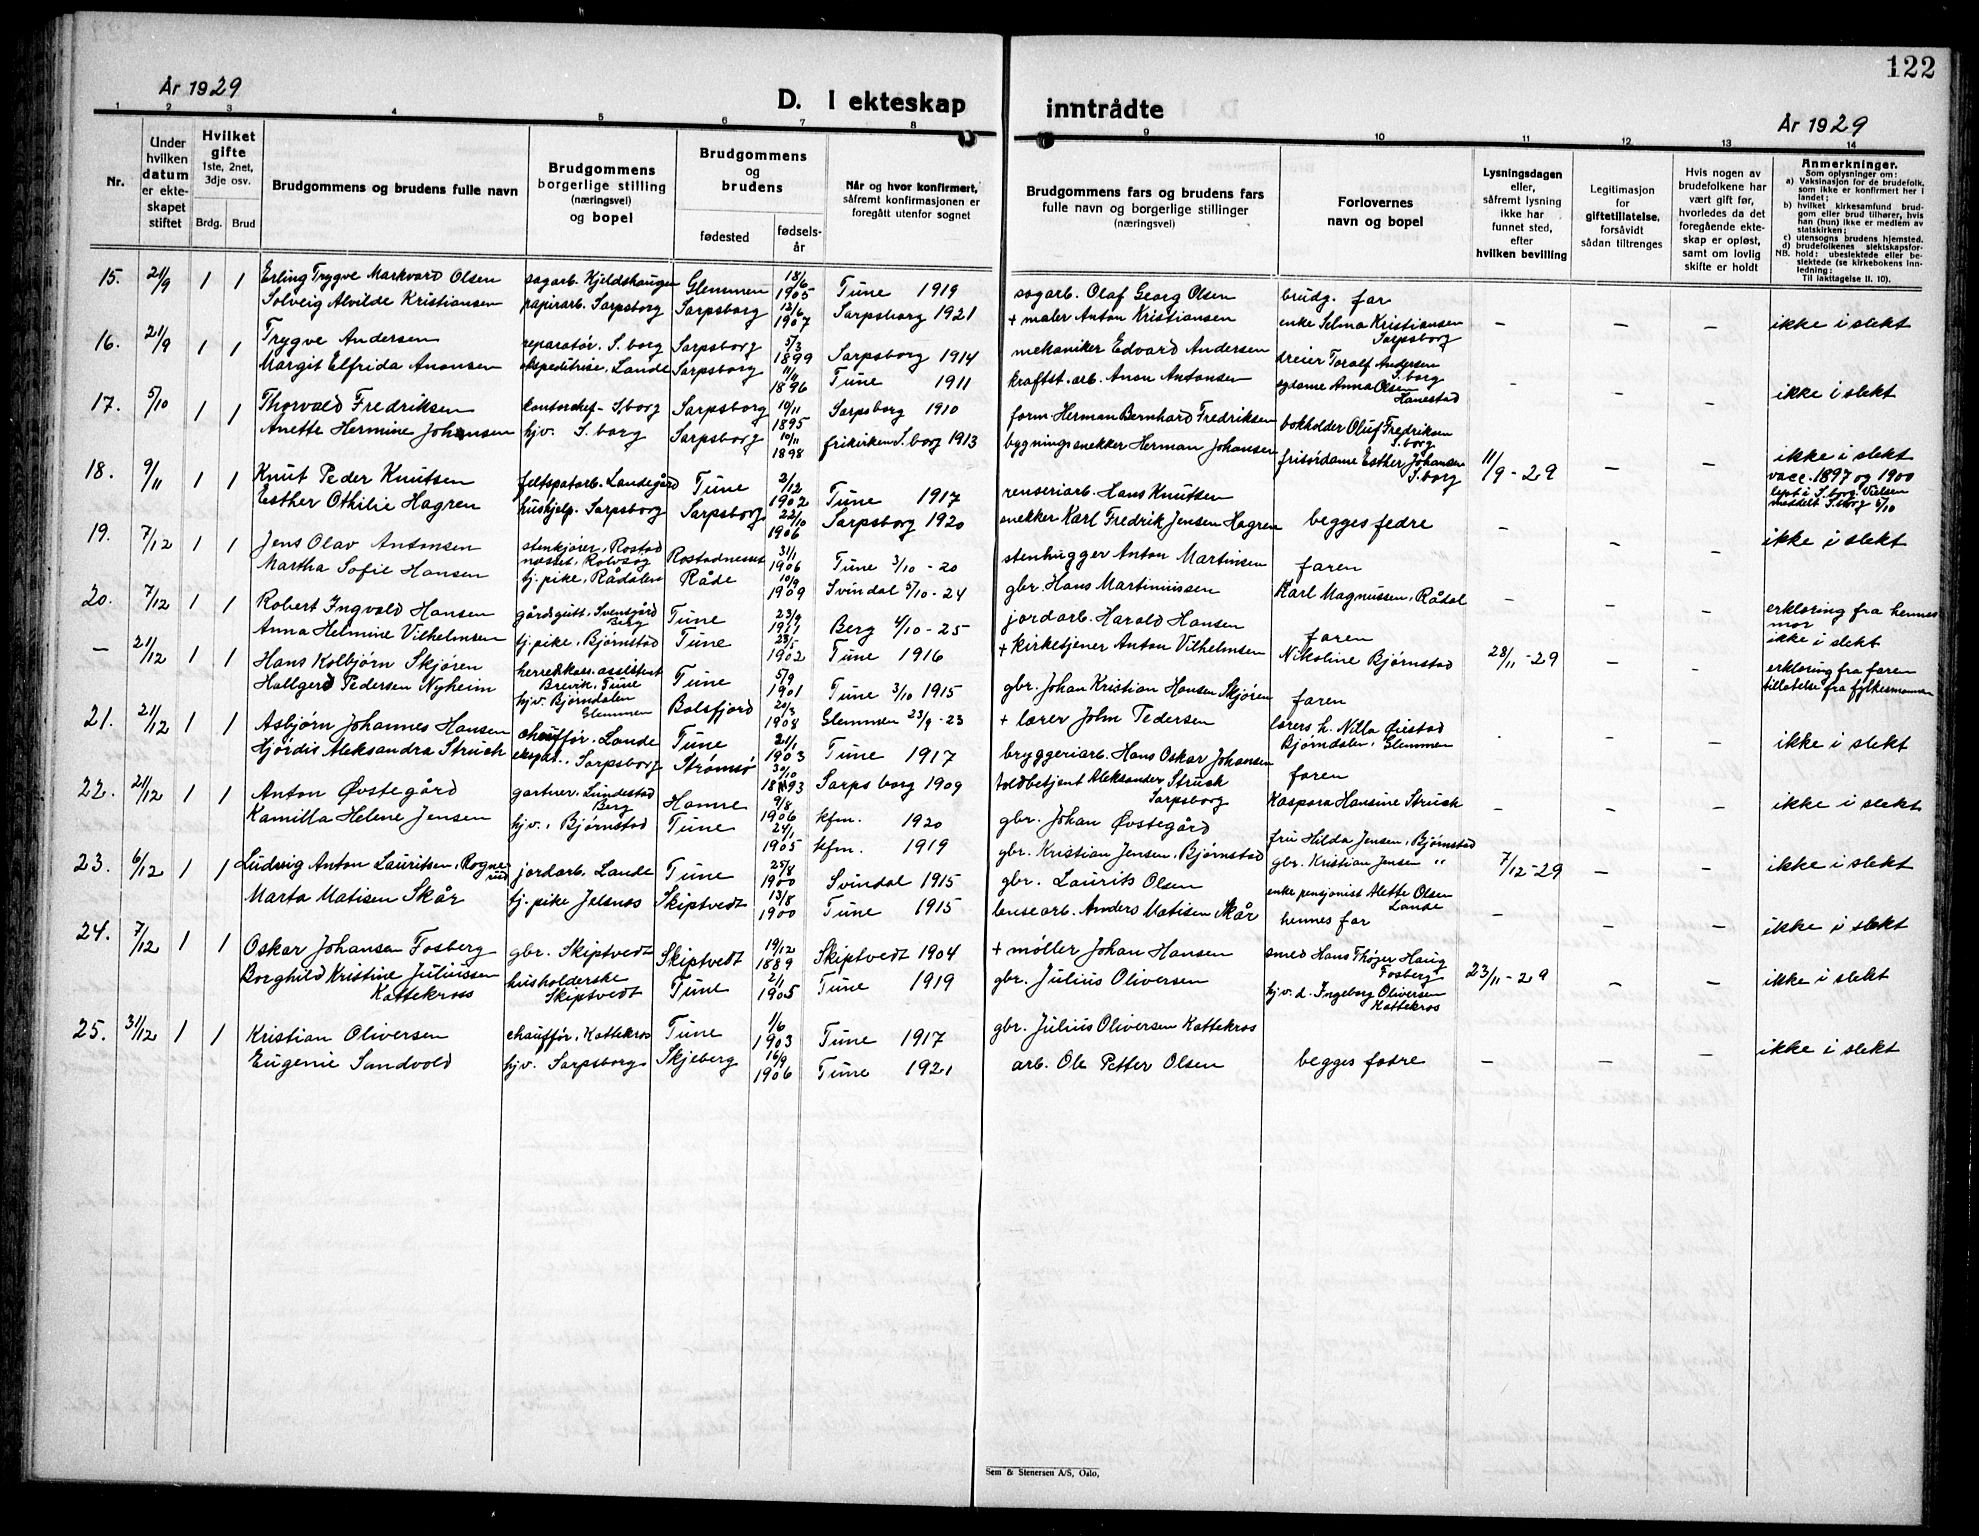 122
År 1929
D. I ekteskap inntrådte
År 1929
1 2 3 4 5 6 7 8 9 10 11 12 13 14
Nr.
Under hvilken datum er ekteskapet stiftet
Hvilket gifte 1ste, 2net, 3dje osv.
Brdg. Brud
Brudgommens og brudens fulle navn
Brudgommens borgerlige stilling (næringsvei) og bopel
Brudgommens og brudens
fødested
fødselsår
Når og hvor konfirmert, såfremt konfirmasjonen er foregått utenfor sognet
Brudgommens fars og brudens fars fulle navn og borgerlige stillinger (næringsvei)
Forlovernes navn og bopel
Lysningsdagen eller, såfremt lysning ikke har funnet sted, efter hvilken bevilling
Legitimasjon for giftetillatelse, forsåvidt sådan tiltrenges
Hvis nogen av brudefolkene har vært gift før, hvorledes da det foregående ekteskap er opløst, samt om lovlig skifte er holdt
Anmerkninger.
Som oplysninger om:
a) Vaksinasjon for de brudefolk, som ikke er konfirmert her i landet;
b) hvilket kirkesamfund brudgom eller brud tilhører, hvis han (hun) ikke er medlem av statskirken;
c) utensogns brudens hjemsted.
d) brudefolkenes slektskapsforhold: ubeslektede eller beslektede (se kirkebokens innledning:
NB. Til Iakttagelse II. 10).
15. 21/9 1 1 Erling Trygve Markvard Olsen sagarb. Kjeldshaugen Glemmen 18/6 1905 Tune 1919 sagarb. Olaf Georg Olsen brudg. far
Solveig Alvilde Kristiansen papirarb. Sarpsborg Sarpsborg 12/6 1907 Sarpsborg 1921 + maler Anton Kristiansen enke Selma Kristiansen Sarpsborg – – – ikke i slekt
16. 21/9 1 1 Trygve Andersen reparatør. S.borg Sarpsborg 5/3 1899 Sarpsborg 1914 mekaniker Edvard Andersen dreier Toralf Andersen S.borg
Margit Elfrida Anonsen ekspeditrise, Lande Sarpsborg 11/11 1896 Tune 1911 kraftst. arb. Anon Antonsen Anna Olsen Hanestad – – – ikke i slekt
17. 5/10 1 1 Thorvald Fredriksen kontorchef - S.borg Sarpsborg 10/11 1895 Sarpsborg 1910 form. Herman Bernhard Fredriksen bokholder Oluf Fredriksen S.borg
Anette Hermine Johansen hjv. S.borg Sarpsborg 10/11 1898 frikirken S.borg 1913 bygningssnekker Herman Johansen frisørdame Esther Johansen S.borg 11/9 - 29 – – ikke i slekt
vacc. 1897 og 1900
18. 9/11 1 1 Knut Peder Knutsen feltspatarb. Landegård Tune 2/12 1902 Tune 1917 renseriarb. Hans Knutsen
Esther Othilie Hagren hushjelp. Sarpsborg Sarpsborg 22/10 1906 Sarpsborg 1920 snekker Karl Fredrik Jensen Hagren begges fedre – – – ikke i slekt
19. 7/12 1 1 Jens Olav Antonsen stenkjører, Rostadnesset, Rolvsøy Rostadnesset 31/1 1906 Tune 3/10 - 20 stenhugger Anton Martinsen faren
Martha Sofie Hansen tj. pike, Rådalen Råde 10/9 1909 Svindal 5/10 - 24 gbr. Hans Martiniussen Karl Magnussen, Rådal – – – erklæring fra hennes mor
ikke i slekt
20. 7/12 1 1 Robert Ingvald Hansen gårdsgutt, Svensgård Berg Tune 23/9 1911 Berg 4/10 - 25 jordarb. Harald Hansen faren
Anna Helmine Vilhelmsen tj. pike, Bjørnstad Tune 28/5 1902 Tune 1916 + kirketjener Anton Vilhelmsen Nikoline Bjørnstad 28/11 - 29 – –
– 21/12 1 1 Hans Kolbjørn Skjøren herredskass. assistent Brevik. Tune Tune 5/9 1901 Tune 3/10 1915 gbr. Johan Kristian Hansen Skjøren faren erklæring fra faren
Hallgerd Pedersen Nyheim hjv. Bjørndalen Glemmen Balsfjord 20/3 1908 Glemmen 23/9 - 23 + lærer John Pedersen lærers h. Nilla Øiestad Bjørndalen, Glemmen tillatelse fra fylkesmannen
21. 21/12 1 1 Asbjørn Johannes Hansen chauffør. Lande Tune 21/1 1903 Tune 1917 bryggeriarb. Hans Oskar Johansen faren – – – ikke i slekt
Hjørdis Aleksandra Strush eksped., Sarpsborg Strømsø 30/10 1893 Sarpsborg 1909 toldbetjent Aleksander Strush Sarpsborg Kaspara Hansine Strush
22. 21/12 1 1 Anton Øvstegård gartner. Lundestad Berg Hamre 9/8 1906 kfm. 1920 gbr. Johan Øvstegård fru Hilda Jensen, Bjørnstad – – – ikke i slekt
Kamilla Helene Jensen hjv., Bjørnstad Tune 24/1 1905 kfm. 1919 gbr. Kristian Jensen, Bjørnstad gbr. Kristian Jensen "
23. 6/12 1 1 Ludvig Anton Lauritsen, Rognerud jordarb. Lande Tune 25/8 1900 Svindal 1915 gbr. Laurits Olsen enke pensjonist Alette Olsen Lande 7/12 - 29 – – ikke i slekt
Marta Matisen Skår tj. pike Jelsnes Skiptvedt 13/8 1900 Tune 1915 lensearb. Anders Matisen Skår hennes far
24. 7/12 1 1 Oskar Johansen Fosberg gbr. Skiptvedt Skiptvedt 19/12 1889 Skiptvedt 1904 + møller Johan Hansen smed Hans Thøger Haug Fosberg – – – ikke i slekt
Borghild Kristine Juliussen Kattekross husholderske Skiptvedt Tune 2/1 1905 Tune 1919 gbr. Julius Oliversen hjv. d. Ingeborg Oliversen Kattekros 23/11 - 29 – – ikke i slekt
25. 31/12 1 1 Kristian Oliversen chauffør, Kattekros Tune 1/6 1903 Tune 1917 gbr. Julius Oliversen Kattekros
Eugenie Sandvold hjv. Sarpsborg Skjeberg 16/9 1906 Tune 1921 arb. Ole Petter Olsen begges fedre – – – ikke i slekt
Sem & Stenersen A/S, Oslo,